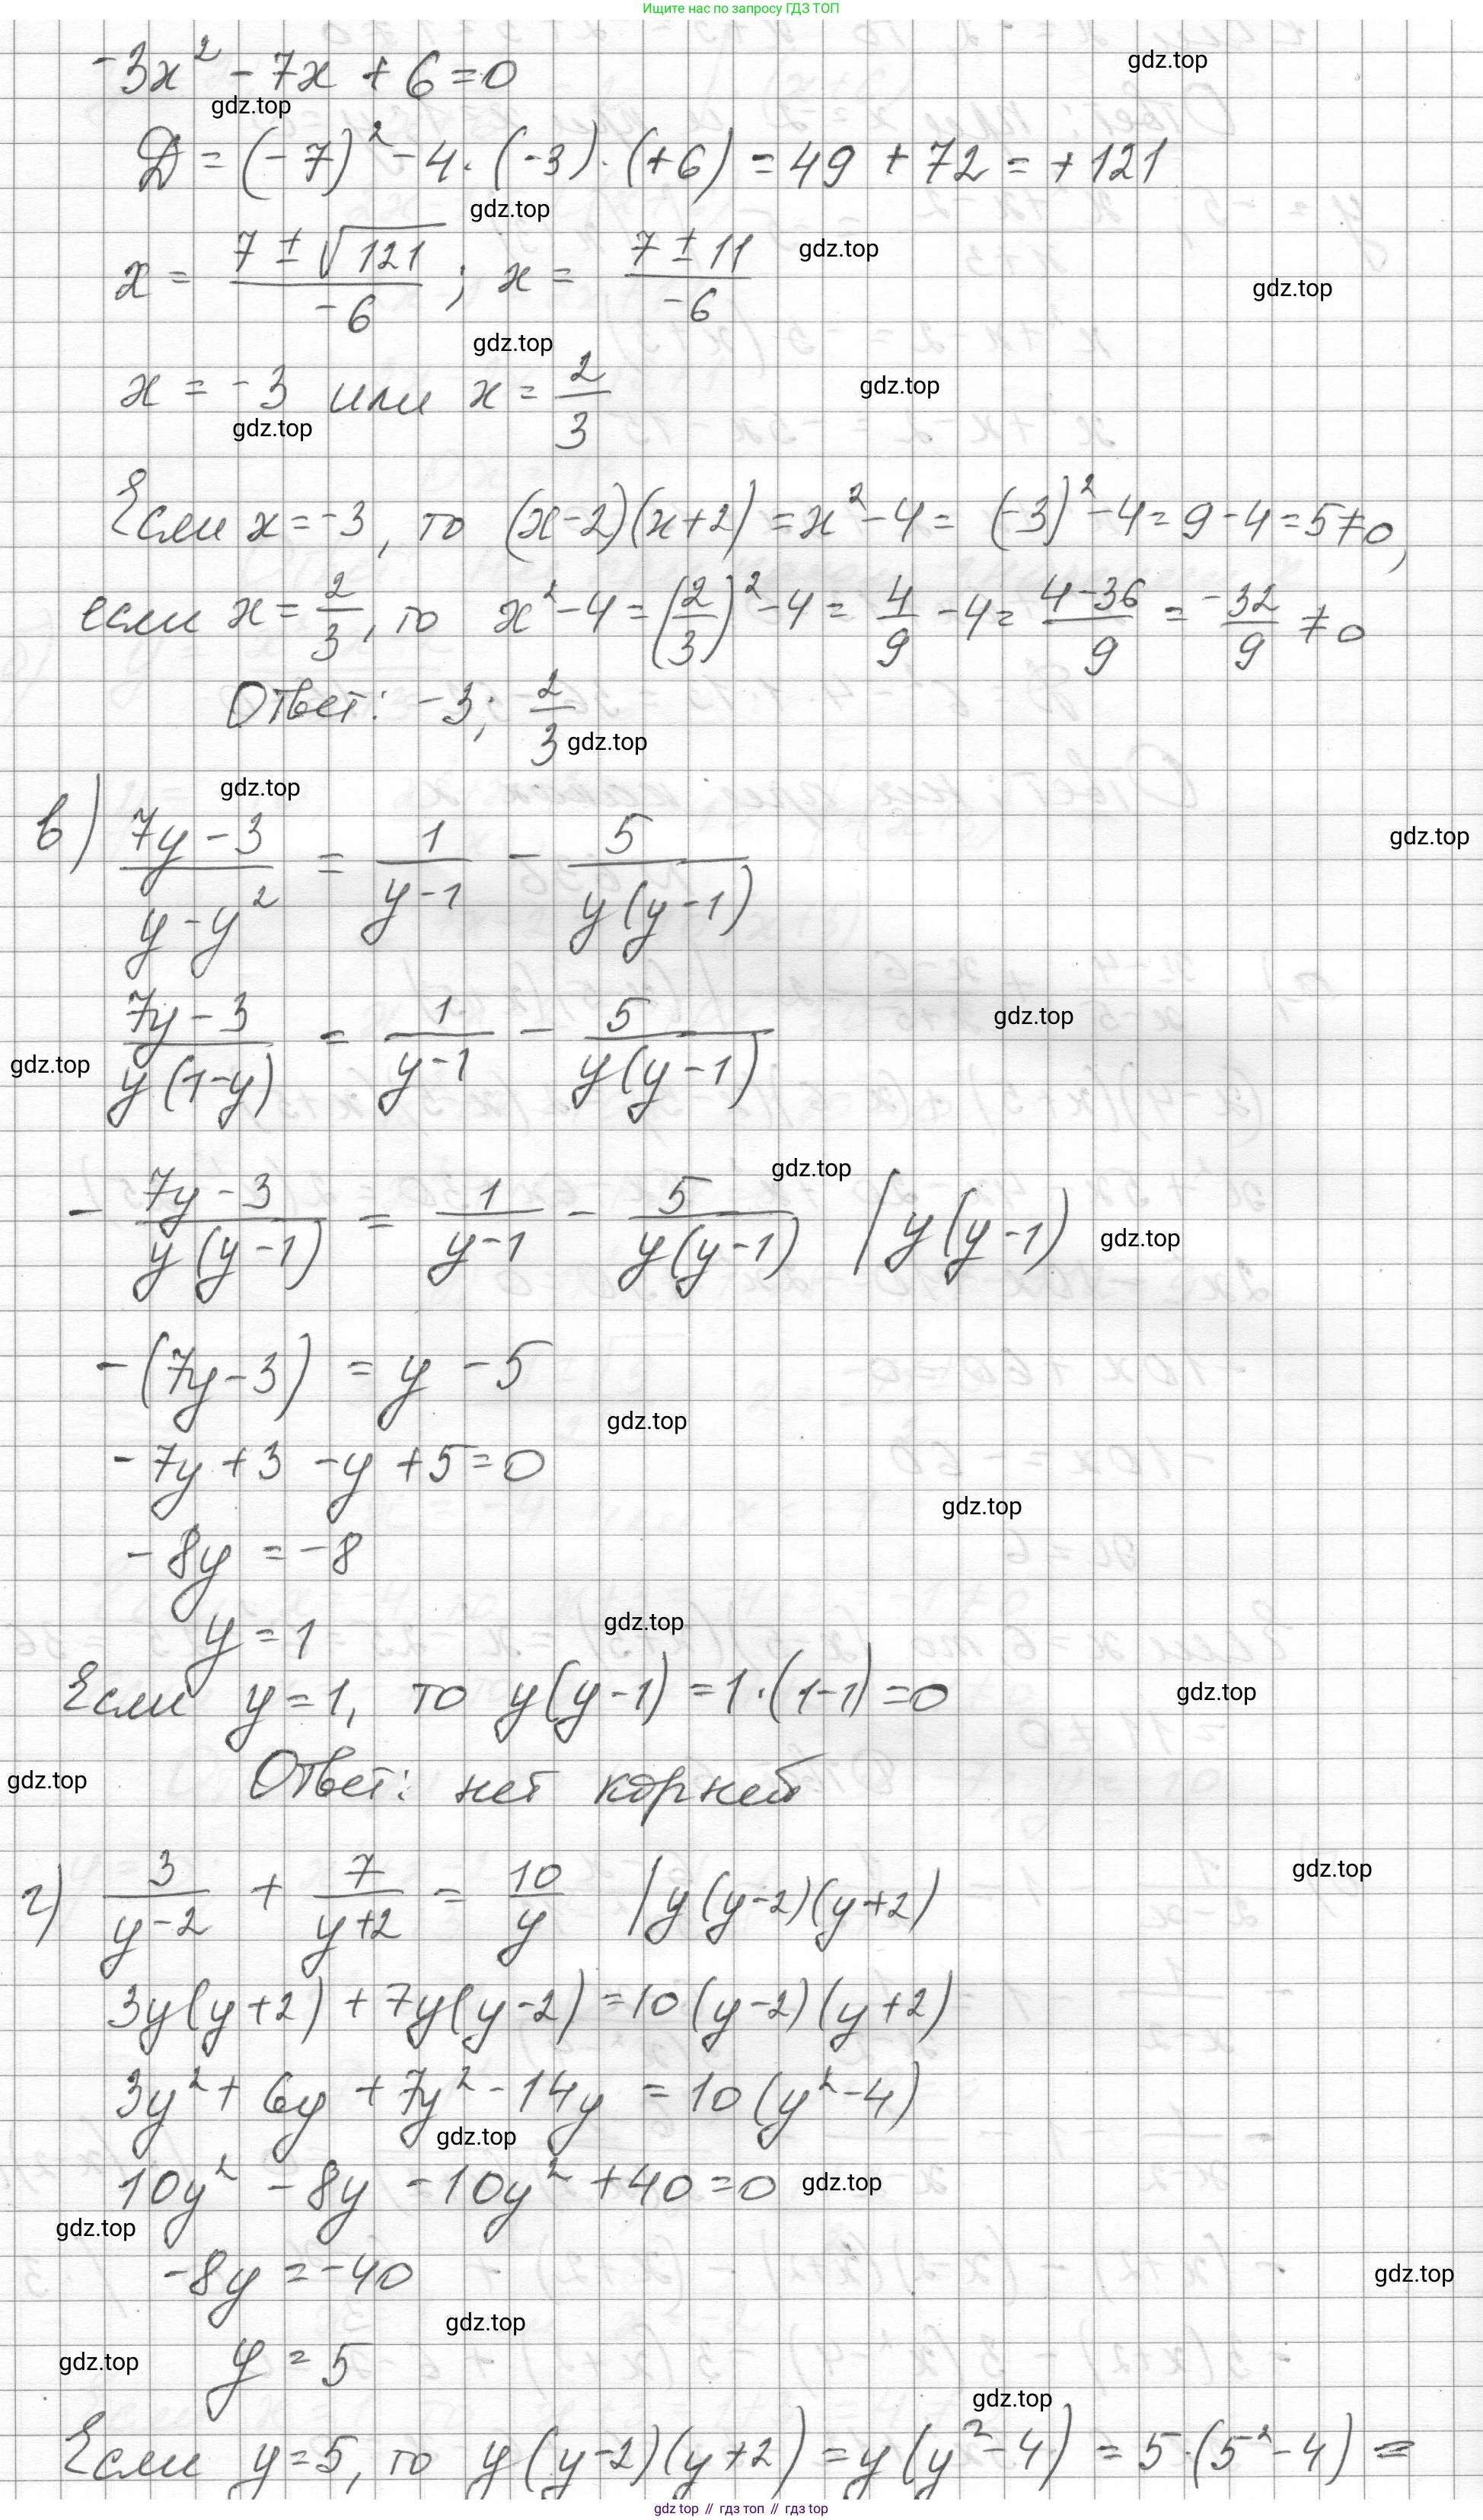 Ищите нас по запросу ГДЗ ТОП
-3x² - 7x + 6 = 0
D = (-7)² - 4·(-3)·(+6) = 49 + 72 = +121
x = (7 ± √121)/(-6) ; x = (7 ± 11)/(-6)
x = -3 или x = 2/3
Если x = -3, то (x-2)(x+2) = x² - 4 = (-3)² - 4 = 9 - 4 = 5 ≠ 0,
если x = 2/3, то x² - 4 = (2/3)² - 4 = 4/9 - 4 = (4-36)/9 = -32/9 ≠ 0
Ответ: -3; 2/3
в) (7y-3)/(y-y²) = 1/(y-1) - 5/(y(y-1))
(7y-3)/(y(1-y)) = 1/(y-1) - 5/(y(y-1))
- (7y-3)/(y(y-1)) = 1/(y-1) - 5/(y(y-1)) | y(y-1)
-(7y-3) = y - 5
-7y + 3 - y + 5 = 0
-8y = -8
y = 1
Если y = 1, то y(y-1) = 1·(1-1) = 0
Ответ: нет корней
г) 3/(y-2) + 7/(y+2) = 10/y | y(y-2)(y+2)
3y(y+2) + 7y(y-2) = 10(y-2)(y+2)
3y² + 6y + 7y² - 14y = 10(y² - 4)
10y² - 8y - 10y² + 40 = 0
-8y = -40
y = 5
Если y = 5, то y(y-2)(y+2) = y(y² - 4) = 5·(5² - 4) =
gdz top // гдз топ // gdz top